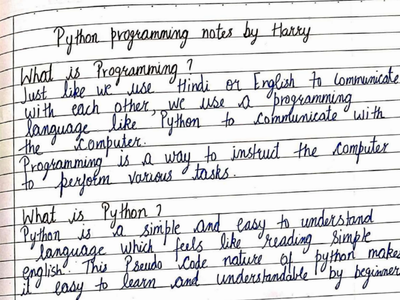 Python programming notes by Harry
What is Programming ?
Just like we use Hindi or English to communicate
with each other, we use a programming
language like Python to communicate with
the computer.
Programming is a way to instruct the computer
to perform various tasks.
What is Python ?
Python is a simple and easy to understand
language which feels like reading simple
english. This Pseudo code nature of python makes
it easy to learn and understandable by beginner